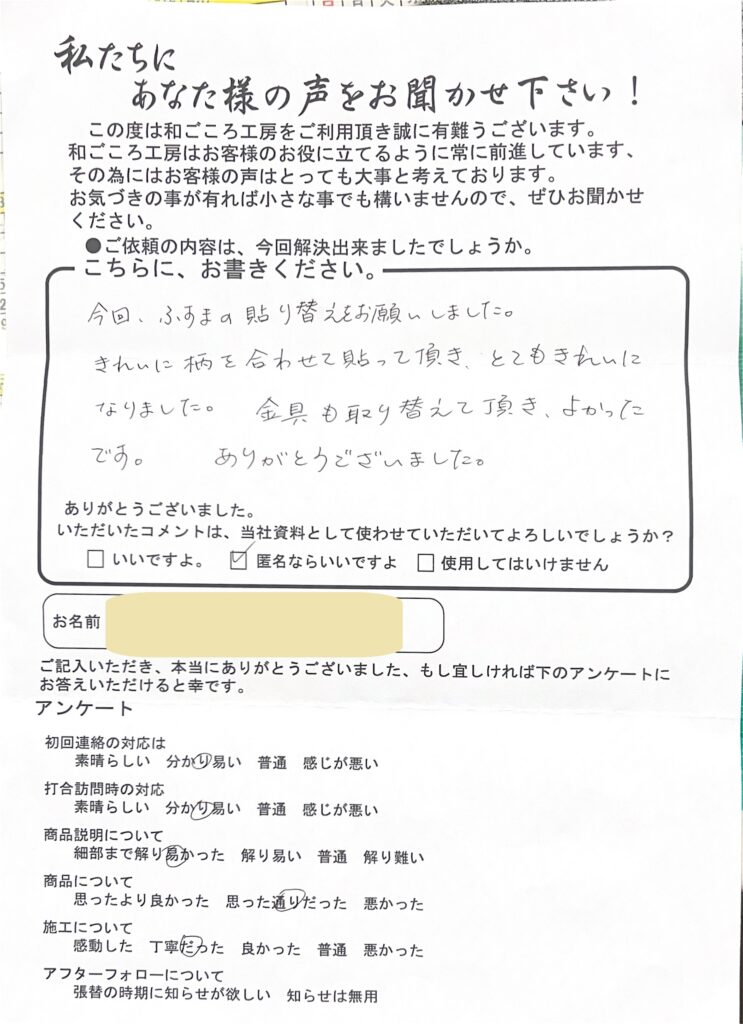 私たちに
あなた様の声をお聞かせ下さい！
この度は和ごころ工房をご利用頂き誠に有難うございます。
和ごころ工房はお客様のお役に立てるように常に前進しています、
その為にはお客様の声はとっても大事と考えております。
お気づきの事が有れば小さな事でも構いませんので、ぜひお聞かせ
ください。
●ご依頼の内容は、今回解決出来ましたでしょうか。
こちらに、お書きください。
今回、ふすまの貼り替えをお願いしました。
きれいに柄を合わせて貼って頂き、とてもきれいに
なりました。 金具も取り替えて頂き、よかった
です。 ありがとうございました。
ありがとうございました。
いただいたコメントは、当社資料として使わせていただいてよろしいでしょうか？
□ いいですよ。 ☑ 匿名ならいいですよ □ 使用してはいけません
お名前
ご記入いただき、本当にありがとうございました、もし宜しければ下のアンケートに
お答えいただけると幸です。
アンケート
初回連絡の対応は
素晴らしい 分かり易い 普通 感じが悪い
打合訪問時の対応
素晴らしい 分かり易い 普通 感じが悪い
商品説明について
細部まで解り易かった 解り易い 普通 解り難い
商品について
思ったより良かった 思った通りだった 悪かった
施工について
感動した 丁寧だった 良かった 普通 悪かった
アフターフォローについて
張替の時期に知らせが欲しい 知らせは無用